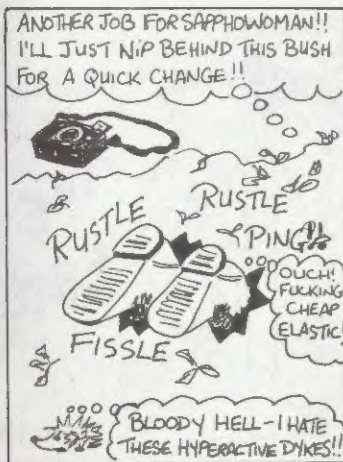 ANOTHER JOB FOR SAPPHOWOMAN!!
I'LL JUST NIP BEHIND THIS BUSH
FOR A QUICK CHANGE!!
RUSTLE
RUSTLE
PING!!
OUCH!
FUCKING
CHEAP
ELASTIC!
FISSLE
BLOODY HELL - I HATE
THESE HYPERACTIVE DYKES!!